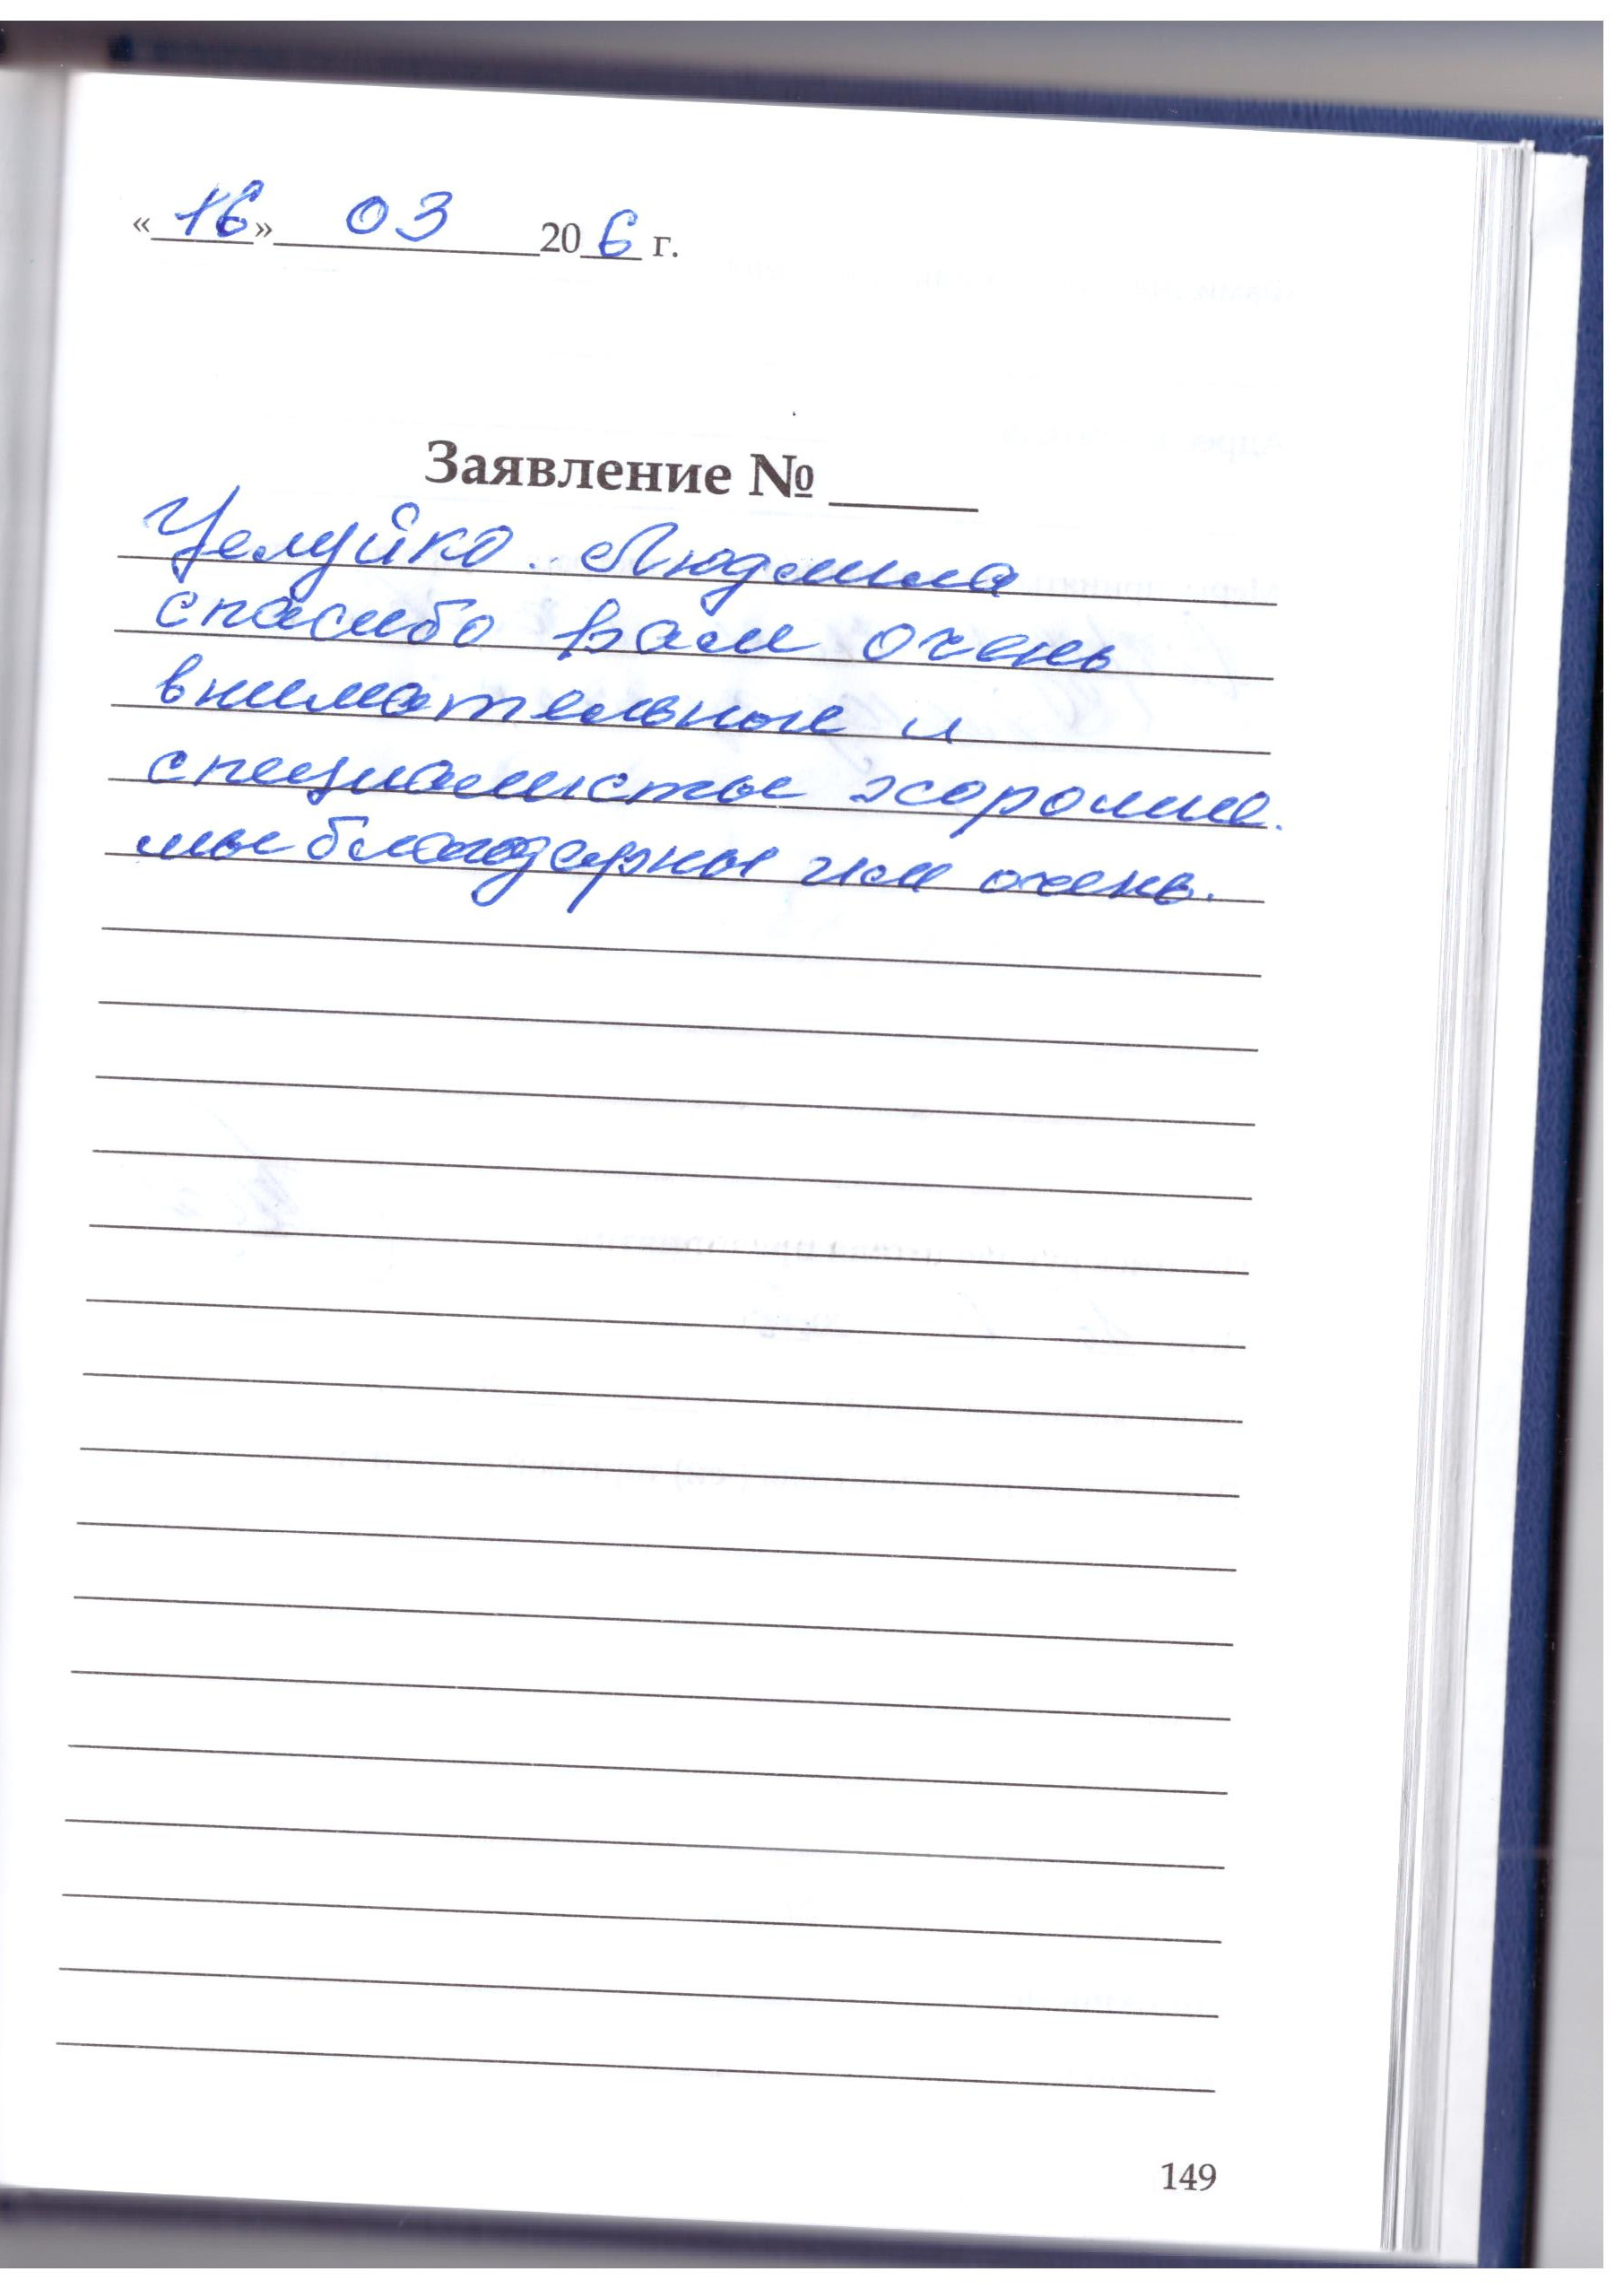 «16» 03 20 6 г.
Заявление №
Целуйко. Людмила
спасибо вам очень
внимательные и
специалисты хорошие.
мы благодарны им очень.
149